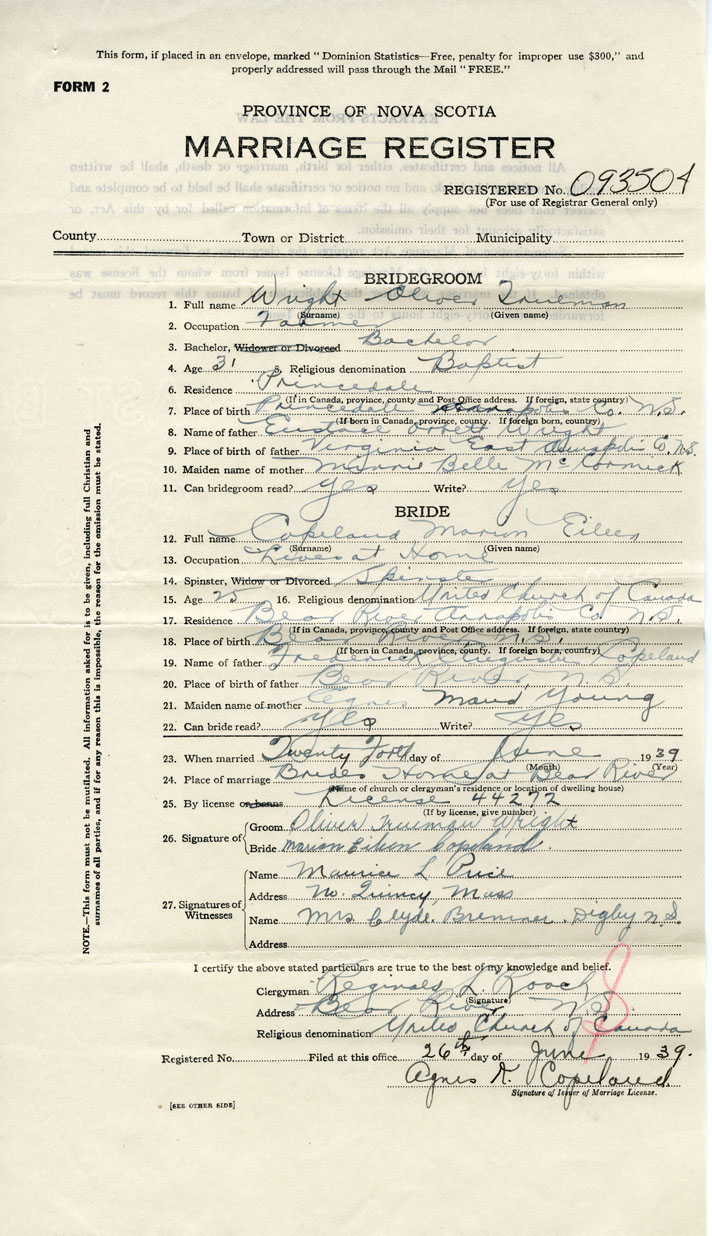 This form, if placed in an envelope, marked "Dominion Statistics—Free, penalty for improper use $300," and
properly addressed will pass through the Mail "FREE."
FORM 2
PROVINCE OF NOVA SCOTIA
MARRIAGE REGISTER
REGISTERED No. 093504
(For use of Registrar General only)
County Town or District Municipality
BRIDEGROOM
1. Full name Wright Oliver Trueman
(Surname) (Given name)
2. Occupation Farmer
3. Bachelor, Widower or Divorced Bachelor
4. Age 31 5. Religious denomination Baptist
6. Residence Princedale
(If in Canada, province, county and Post Office address. If foreign, state country)
7. Place of birth Princedale Annapolis Co. N.S.
(If born in Canada, province, county. If foreign born, country)
8. Name of father Eustace Wright
9. Place of father Virginia East Annapolis Co. N.S.
10. Maiden name of mother Minnie Belle McCormick
11. Can bridegroom read? Yes Write? Yes
BRIDE
12. Full name Copeland Marion Eileen
(Surname) (Given name)
13. Occupation Lives at Home
14. Spinster, Widow or Divorced Spinster
15. Age 25 16. Religious denomination United Church of Canada
17. Residence Bear River Annapolis Co. N.S.
(If in Canada, province, county and Post Office address. If foreign, state country)
18. Place of birth Bear River N.S.
(If born in Canada, province, county. If foreign born, country)
19. Name of father Frederick Augustus Copeland
20. Place of birth of father Bear River, N.S.
21. Maiden name of mother Agnes Maud Young
22. Can bride read? Yes Write? Yes
23. When married Twenty Forth day of June 1939
(Month) (Year)
24. Place of marriage Brides Home at Bear River
(Name of church or clergyman's residence or location of dwelling house)
25. By license or banns License 44272
(If by license, give number)
26. Signature of Groom Oliver Trueman Wright
Bride Marion Eileen Copeland.
27. Signatures of Witnesses Name Maurice L Price
Address No. Quincy, Mass
Name Mrs Clyde Bremner. Digby N.S.
Address
I certify the above stated particulars are true to the best of my knowledge and belief.
Clergyman Reginald L Roach
(Signature)
Address Bear River NS
Religious denomination United Church of Canada
Registered No. Filed at this office 26th day of June 1939.
Agnes Copeland
Signature of Issuer of Marriage License.
[SEE OTHER SIDE]
NOTE.—This form must not be mutilated. All information asked for is to be given, including full Christian and
surnames of all parties, and if for any reason this is impossible, the reason for the omission must be stated.